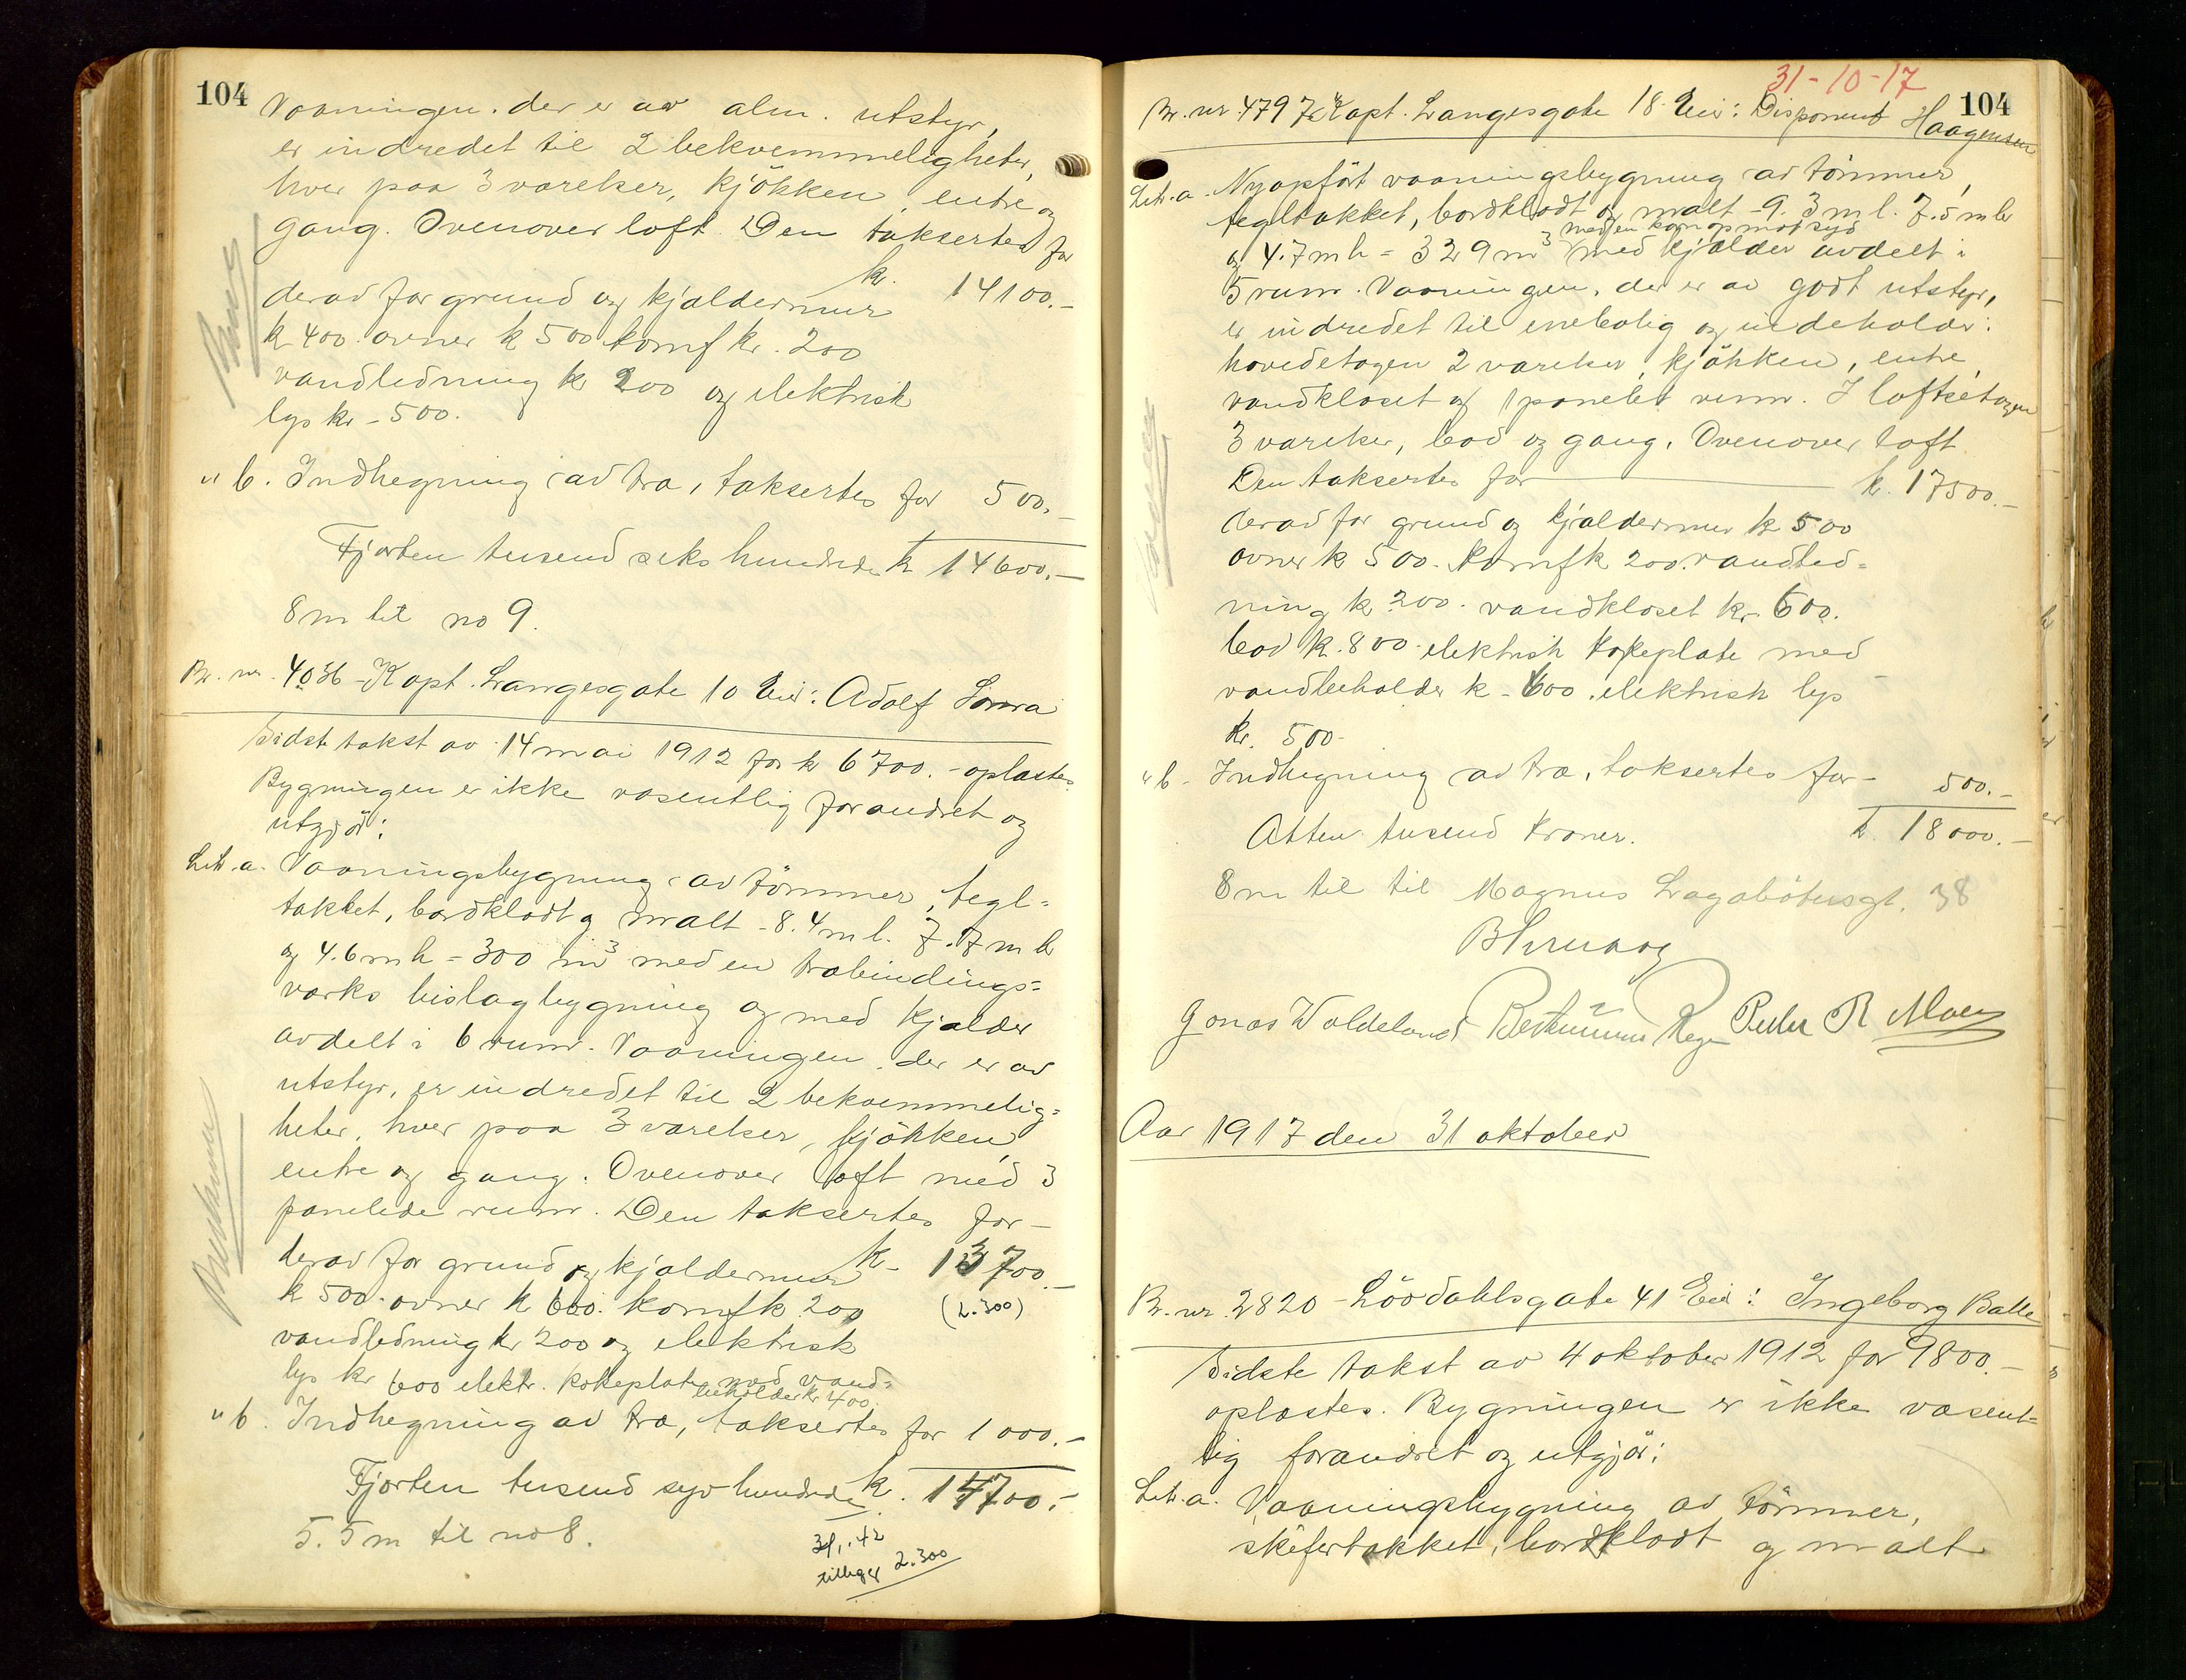 104
Vaaningen. der er av alm. utstyr,
er indredet til 2 bekvemmeligheter,
hver paa 3 værelser, kjökken, entre og
gang. Ovenover loft. Den takseres for
k. 14100.-
derav for grund og kjældermur
k 400. ovner k 500 komf kr. 200
vandledning k 200 og elektrisk
lys kr - 500.
" b. Indhegning av træ, takseres for 500.-
Fjorten tusend seks hundrede k 14600.-
8 m til no 9.
Br. nr. 4036 - Kapt. Langesgate 10 Eier: Adolf
Sidste takst av 14 mai 1912 for k 6700.- oplæstes.
Bygningen er ikke væsentlig forandret og
utgjör:
Litr. a. Vaaningsbygning av tömmer, tegl=
takket, bordklædt og malt - 8.4 m l. 7.7 m b
og 4.6 m h = 300 m³ med en træbindings=
verks bislagbygning og med kjælder
avdelt i 6 rum. Vaaningen, der er av
utstyr, er indredet til 2 bekvemmelig=
heter, hver paa 3 værelser, kjökken,
entre og gang. Ovenover loft med 3
panelede rum. Den takseres for -
k - 13700.-
derav for grund og kjældermur
k 500. ovner k 600. komf k 200 (2.300)
vandledning kr 200 og elektrisk
lys kr 600 elektr. kokeplate med vand=
beholder kr 400.
" b. Indhegning av træ, takseres for 1000.-
Fjorten tusend syv hundrede k. 14700.-
5.5 m til no 8.
tillæger 2.300
31-10-17
104
Br. nr. 4797 Kapt. Langesgate 18 Eier: Disponent Haagensen
Litr. a. Nyopfört vaaningsbygning av tömmer,
tegltakket, bordklædt og malt - 9.3 m l. 7.5 m b
med en karnap mot syd
og 4.7 m h = 329 m³ med kjælder avdelt i
5 rum. Vaaningen, der er av godt utstyr,
er indredet til enebolig og indeholder:
hovedetagen 2 værelser, kjökken, entre,
vandkloset og 1 panelet rum. I loftsetagen
3 værelser, bad og gang. Ovenover loft
Den takseres for k. 17500.-
derav for grund og kjældermur k 500
ovner k 500. komf k 200. vandled=
ning k 200. vandkloset kr. 600.
bad k. 800. elektrisk kokeplate med
vandbeholder k - 600. elektrisk lys
kr. 500-
" b - Indhegning av træ, takseres for - 500.-
Atten tusend kroner. k 18000.-
8 m til til Magnus Lagabötersgt. 38
Jonas Woldeland Peder R Moen
Aar 1917 den 31 oktober
Br. nr. 2820 - Lövdahlsgate 41 Eier: Ingeborg Balle
Sidste takst av 4 oktober 1912 for 9800.-
oplæstes. Bygningen er ikke væsent=
lig forandret og utgjör:
Litr. a. Vaaningsbygning av tömmer,
skifertakket, bordklædt og malt